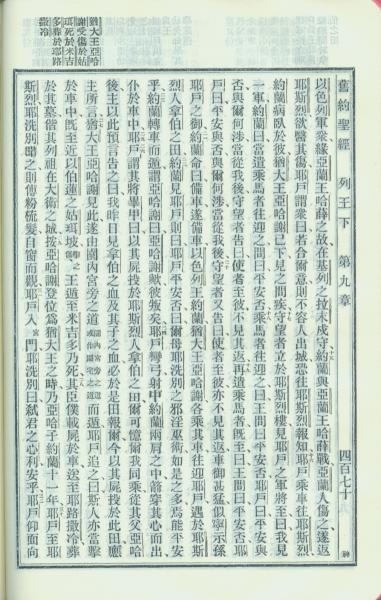 舊約聖經　列王下　第九章　四百七十
猶大王亞哈
謝受傷於姑
珥死於米吉
多葬於耶路
撒冷
以色列軍衆緣亞蘭王哈薛之故在基列之拉末戍守約蘭與亞蘭王哈薛戰亞蘭人傷之遂返
耶斯烈欲醫其傷耶戶謂衆曰若合爾意則不容人出城恐往耶斯烈報知耶戶乘車往耶斯烈
約蘭病臥於彼猶大王亞哈謝已下見之問疾守望者立於耶斯烈樓見耶戶之軍將至曰我見
一軍約蘭曰當遣乘馬者往迎之問曰平安否乘馬者往迎之曰王問曰平安否耶戶曰平安與
否與爾何涉當從我後守望者告曰使者至彼不見其返再遣乘馬者旣至曰王問曰平安否耶
戶曰平安與否與爾何涉當從我後守望者又告曰使者至彼亦不見其返車御甚猛似寧示孫
耶戶之御約蘭命曰備車遂備車以色列王約蘭猶大王亞哈謝各乘其車往迎耶戶遇於耶斯
烈人拿伯之田約蘭見耶戶則曰耶戶平安否曰爾母耶洗別之邪淫巫術如是之多焉能平安
乎約蘭轉車而遁謂亞哈謝曰亞哈謝歟彼叛矣耶戶彎弓射中約蘭兩肩之中箭穿其心而出
仆於車中耶戶謂其將畢甲曰以其屍投於耶斯烈人拿伯之田爾可憶爾我同乘從其父亞哈
後主以此預言告之曰我昨日見拿伯之血及其子之血必於是田報爾今以其屍投於此田應
主所言猶大王亞哈謝見此遂由園內宮旁之道而遁耶戶追之曰斯人亦當擊
於車中旣至近以伯蓮之姑珥坡王遁至米吉多乃死其臣僕載屍於車送至耶路撒冷葬
於其墓偕其列祖在大衛之城按亞哈謝登位爲猶大王之時乃亞哈子約蘭十一年耶戶至耶
斯烈耶洗別聞之則傅粉梳髮自窗而觀耶戶入宮門耶洗別曰弒君之心利安乎耶戶仰面向